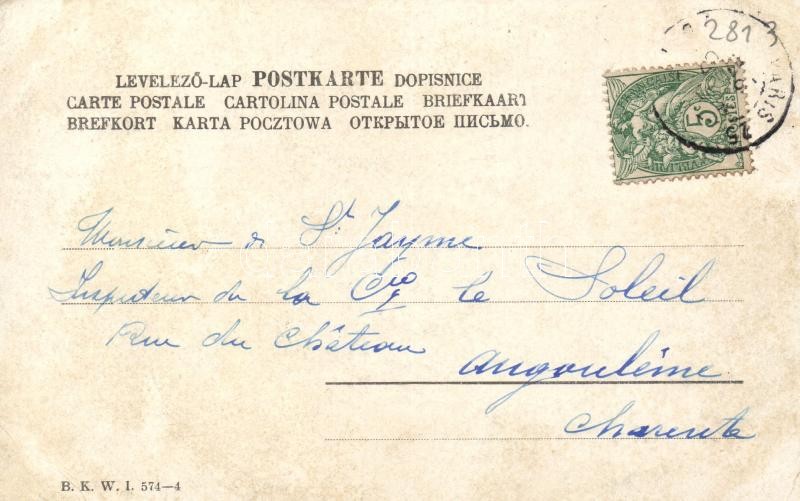 LEVELEZŐ-LAP POSTKARTE DOPISNICE
CARTE POSTALE CARTOLINA POSTALE BRIEFKAART
BREFKORT KARTA POCZTOWA ОТКРЫТОЕ ПИСЬМО.
281
PARIS
5c
Monsieur de St Jayme
Inspecteur de la Cie le Soleil
Rue du Château
Angoulême
Charente
B. K. W. I. 574—4